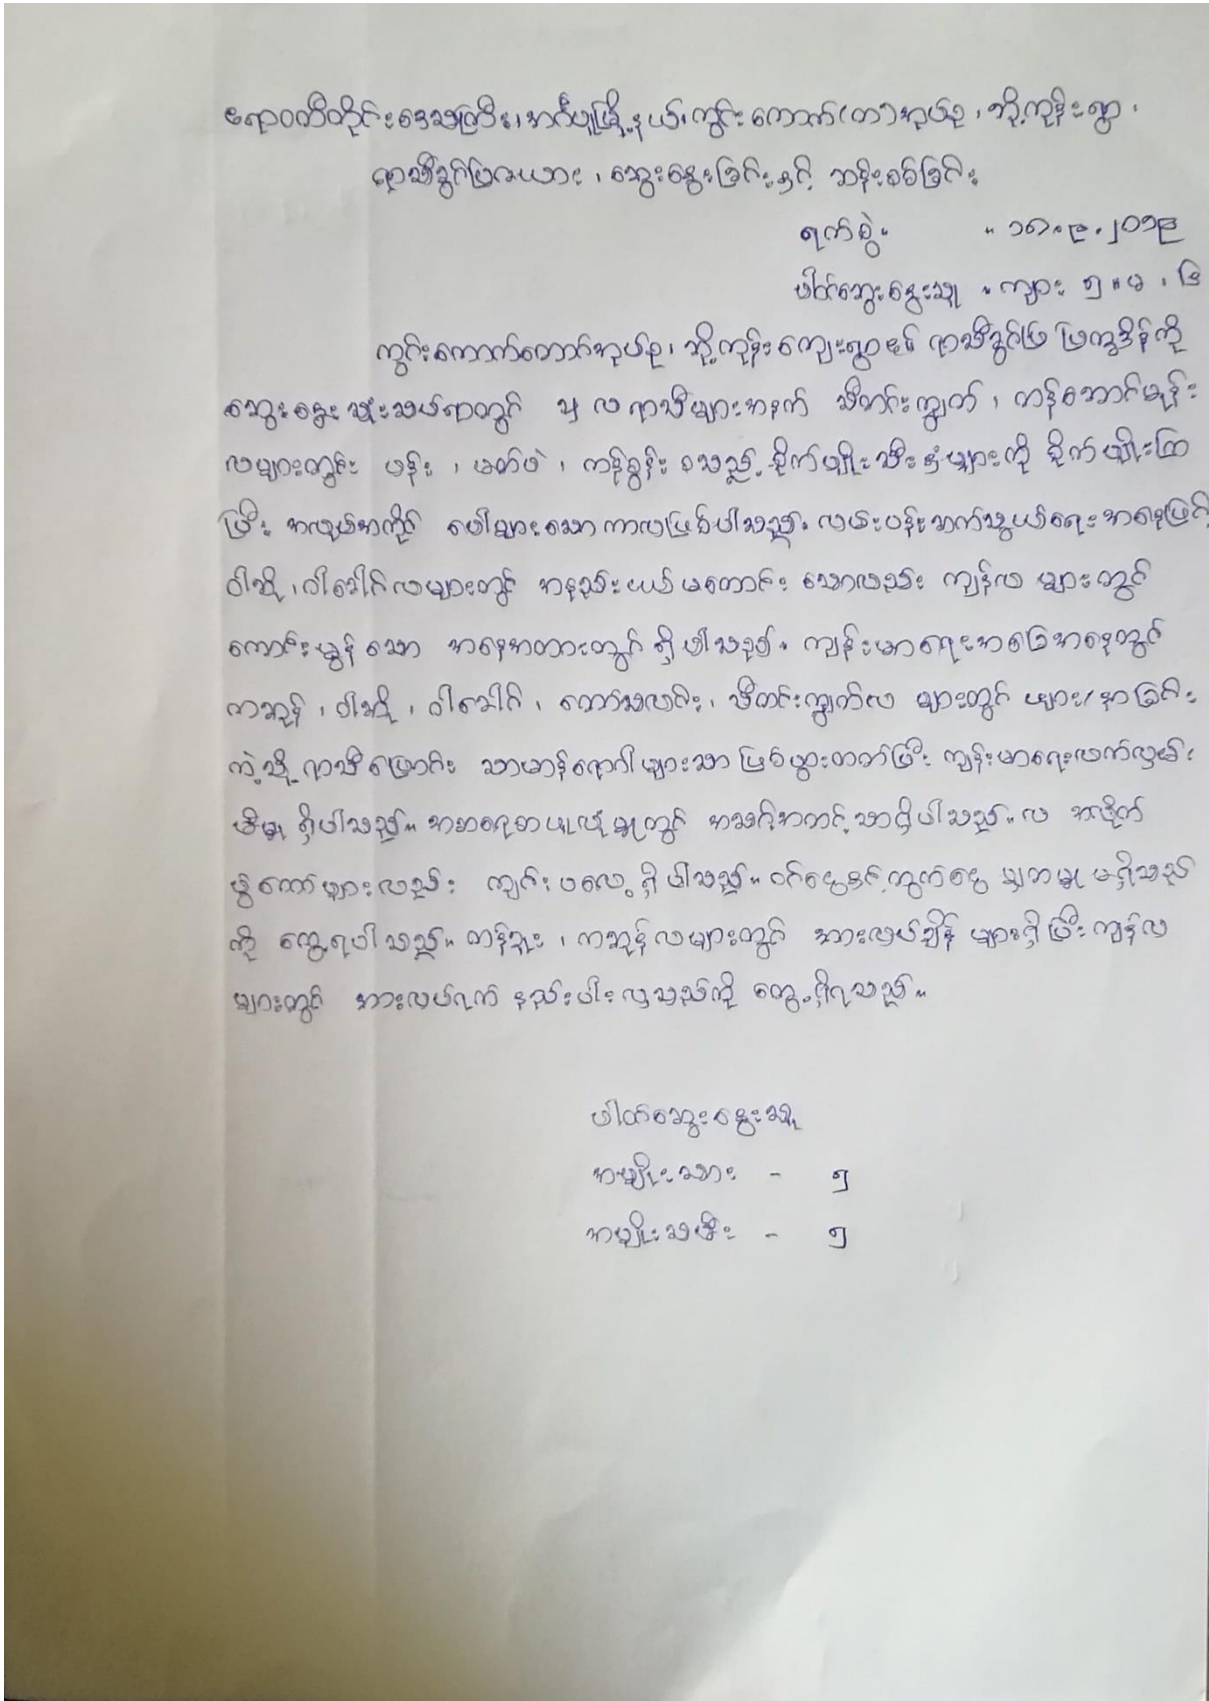 ဧရာဝတီတိုင်းဒေသကြီး၊ အင်္ဂပူမြို့နယ်၊ ကွင်းကောက်(တ)အုပ်စု၊ ဘို့ကုန်းရွာ၊
ရာသီခွင်ပြဇယား၊ ဆွေးနွေးခြင်းနှင့် ဆန်းစစ်ခြင်း
ရက်စွဲ။ ။ ၁၈.၉.၂၀၁၉
ပါဝင်ဆွေးနွေးသူ ။ ကျား ၅ ။ မ ၊
ကွင်းကောက်တောင်အုပ်စု၊ ဘို့ကုန်းကျေးရွာ၏ ရာသီခွင်ပြ ပြက္ခဒိန်ကို
ဆွေးနွေးသုံးသပ်ရာတွင် ၁၂ လ ရာသီများအနက် သီတင်းကျွတ်၊ တန်ဆောင်မုန်း
လများတွင် ပန်း၊ မတ်ပဲ၊ ကန်စွန်း စသည့် စိုက်ပျိုးသီးနှံများကို စိုက်ပျိုးကြ
ပြီး အလုပ်အကိုင် ပေါများသော ကာလဖြစ်ပါသည်။ လမ်းပန်းဆက်သွယ်ရေး အနေဖြင့်
ဝါဆို၊ ဝါခေါင်လများတွင် အနည်းငယ်မကောင်း သော်လည်း ကျန်လ များတွင်
ကောင်းမွန်သော အနေအထားတွင် ရှိပါသည်။ ကျန်းမာရေးအခြေအနေတွင်
ကဆုန်၊ ဝါဆို၊ ဝါခေါင်၊ တော်သလင်း၊ သီတင်းကျွတ်လ များတွင် ဖျား/နာခြင်း
ကဲ့သို့ ရာသီပြောင်း သာမာန်ရောဂါများသာ ဖြစ်ပွားတတ်ပြီး ကျန်းမာရေးလက်လှမ်း
မီမှု ရှိပါသည်။ အစာရေစာဖူလုံမှုတွင် အသင့်အတင့်သာရှိပါသည်။ လ အလိုက်
ပွဲတော်များလည်း ကျင်းပလေ့ရှိပါသည်။ ဝင်ငွေနှင့်ထွက်ငွေ မျှတမှု မရှိသည်
ကို တွေ့ရပါသည်။ တန်ခူး၊ ကဆုန်လများတွင် အားလပ်ချိန် များရှိပြီး ကျန်လ
များတွင် အားလပ်ရက် နည်းပါးလှသည်ကို တွေ့ရှိရသည်။
ပါဝင်ဆွေးနွေးသူ
အမျိုးသား - ၅
အမျိုးသမီး - ၅